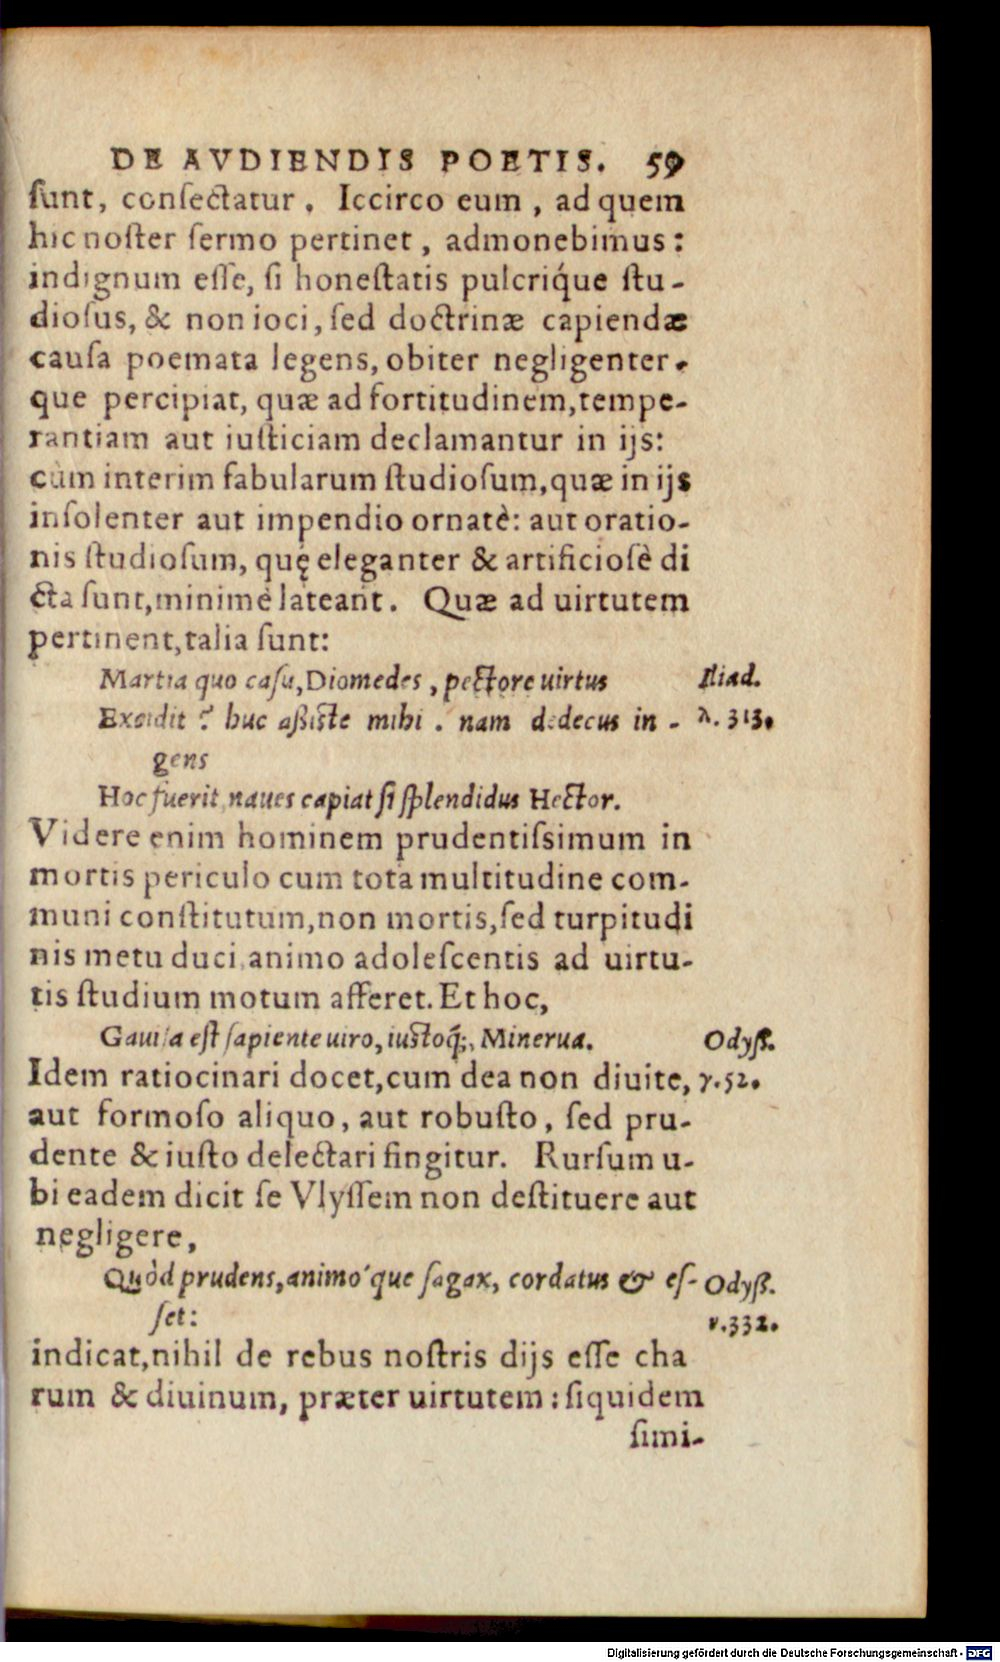 DE AVDIENDIS POETIS. 59
ſunt, conſectatur. Iccirco eum, ad quem
hic noſter ſermo pertinet, admonebimus:
indignum eſſe, ſi honeſtatis pulcriq́ue ſtu-
dioſus, & non ioci, ſed doctrinæ capiendæ
cauſa poemata legens, obiter negligenter-
que percipiat, quæ ad fortitudinem, tempe-
rantiam aut iuſticiam declamantur in ijs:
cùm interim fabularum ſtudioſum, quæ in ijs
inſolenter aut impendio ornatè: aut oratio-
nis ſtudioſum, quę eleganter & artificioſè di
cta ſunt, minimè lateant. Quæ ad uirtutem
pertinent, talia ſunt:
Martia quo caſu, Diomedes, pectore uirtus
Iliad.
Excidit? huc aßiſte mihi. nam dedecus in-
λ. 313.
gens
Hoc fuerit, naues capiat ſi ſplendidus Hector.
Videre enim hominem prudentiſsimum in
mortis periculo cum tota multitudine com-
muni conſtitutum, non mortis, ſed turpitudi
nis metu duci, animo adoleſcentis ad uirtu-
tis ſtudium motum afferet. Et hoc,
Gauiſa eſt ſapiente uiro, iuſtoq́;, Minerua.
Odyß.
Idem ratiocinari docet, cum dea non diuite,
γ. 52.
aut formoſo aliquo, aut robuſto, ſed pru-
dente & iuſto delectari fingitur. Rurſum u-
bi eadem dicit ſe Vlyſſem non deſtituere aut
negligere,
Quòd prudens, animo´que ſagax, cordatus & eſ-
Odyß.
ſet:
ν. 332.
indicat, nihil de rebus noſtris dijs eſſe cha
rum & diuinum, præter uirtutem: ſiquidem
ſimi-
Digitalisierung gefördert durch die Deutsche Forschungsgemeinschaft - DFG